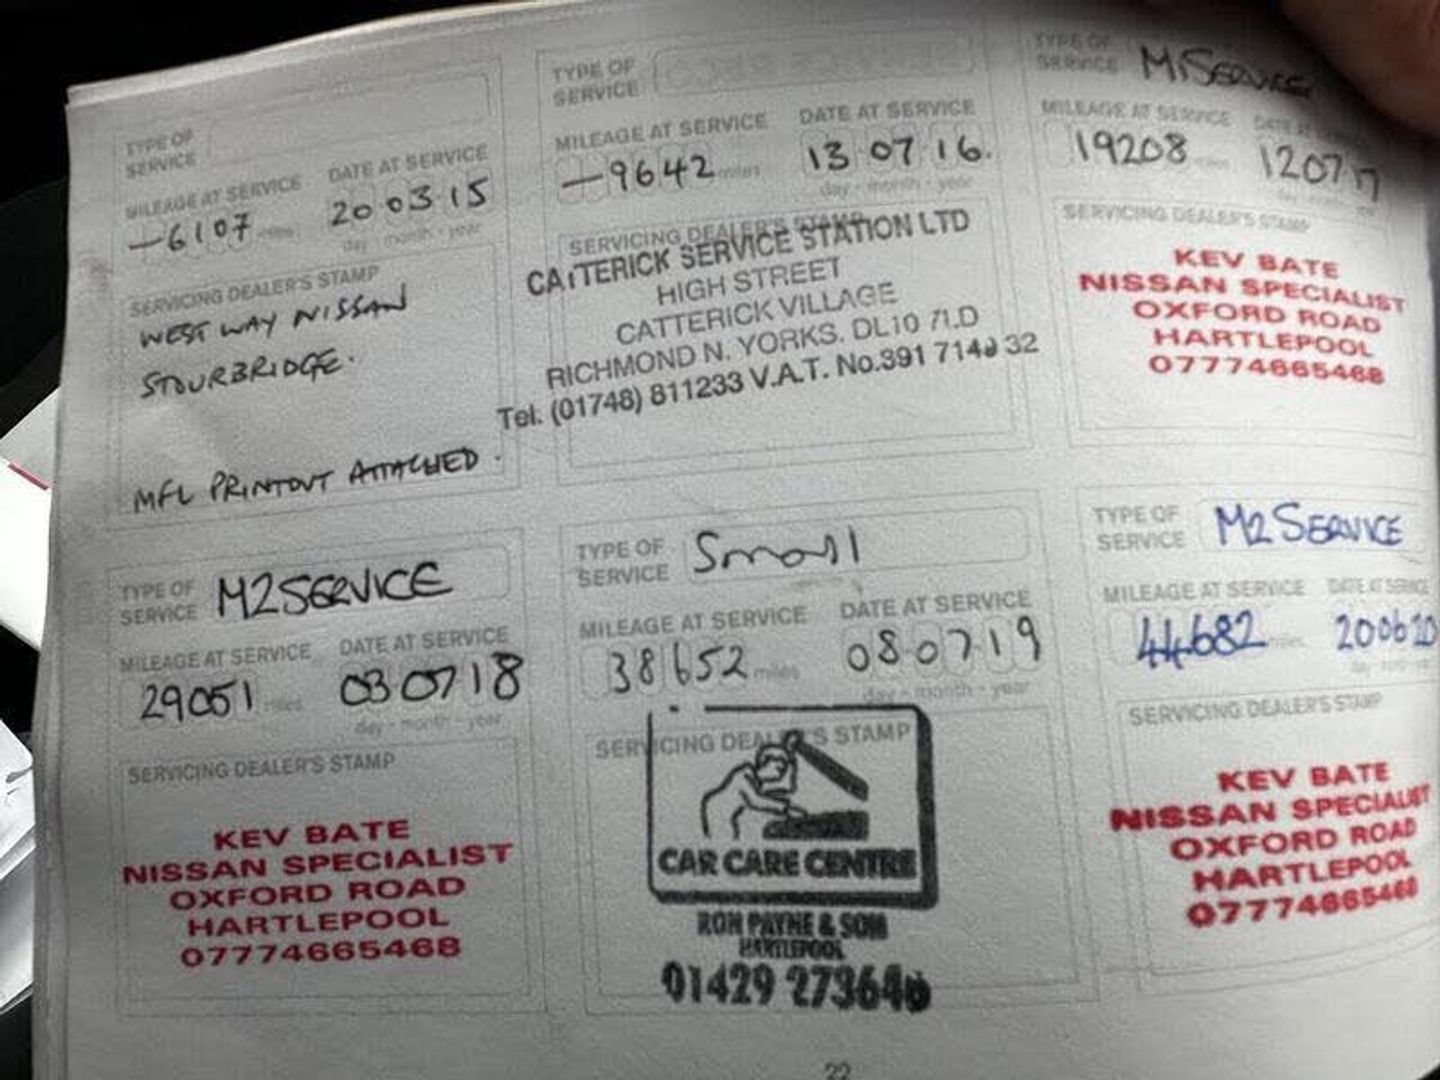 TYPE OF
SERVICE
MILEAGE AT SERVICE
DATE AT SERVICE
-6107 miles
20 03 15
day - month - year
SERVICING DEALER'S STAMP
WESTWAY NISSAN
STOURBRIDGE.
MFL PRINTOUT ATTACHED.
TYPE OF
SERVICE
MILEAGE AT SERVICE
DATE AT SERVICE
-9642 miles
13 07 16.
day - month - year
SERVICING DEALER'S STAMP
CATTERICK SERVICE STATION LTD
HIGH STREET
CATTERICK VILLAGE
RICHMOND N. YORKS. DL10 7LD
Tel. (01748) 811233 V.A.T. No.391 714 32
TYPE OF
SERVICE
M1SERVICE
MILEAGE AT SERVICE
DATE AT
19208 miles
120717
SERVICING DEALER'S STAMP
KEV BATE
NISSAN SPECIALIST
OXFORD ROAD
HARTLEPOOL
07774665468
TYPE OF
SERVICE
M2SERVICE
MILEAGE AT SERVICE
DATE AT SERVICE
29051 miles
030718
day - month - year
SERVICING DEALER'S STAMP
KEV BATE
NISSAN SPECIALIST
OXFORD ROAD
HARTLEPOOL
07774665468
TYPE OF
SERVICE
Small
MILEAGE AT SERVICE
DATE AT SERVICE
38652 miles
080719
day - month - year
SERVICING DEALER'S STAMP
CAR CARE CENTRE
RON PAYNE & SON
HARTLEPOOL
01429 273640
TYPE OF
SERVICE
M2 SERVICE
MILEAGE AT SERVICE
DATE AT SERVICE
44682 miles
200620
SERVICING DEALER'S STAMP
KEV BATE
NISSAN SPECIALIST
OXFORD ROAD
HARTLEPOOL
07774665468
22